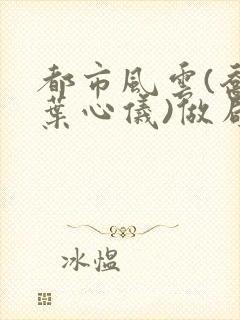 都市風雲(喬
葉心儀)做局
冰愠